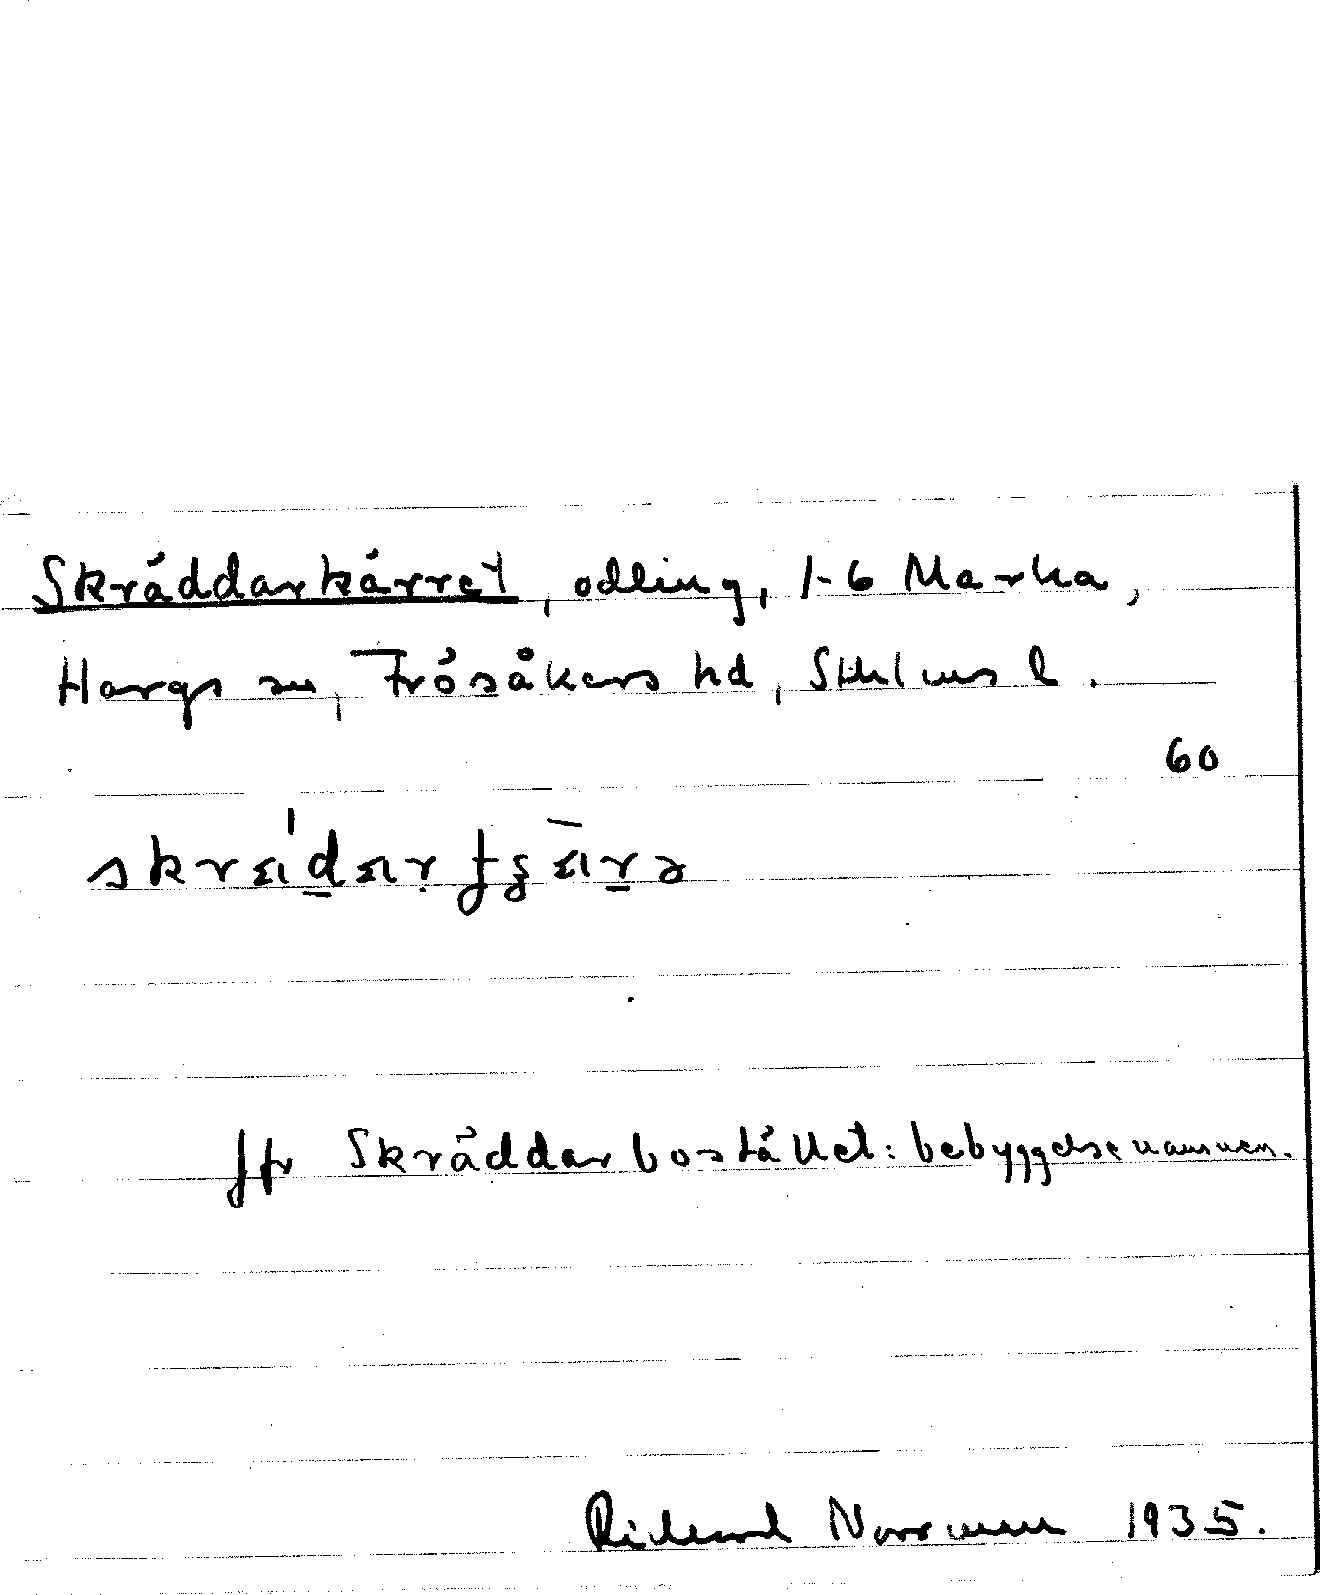 Skräddarkärret, odling, 1-6 Marka,
Hargs sn, Frösåkers hd, Sthlms l.
60
Jfr Skräddarbostället: bebyggelsenamnen.
Rickard Norrman 1935.